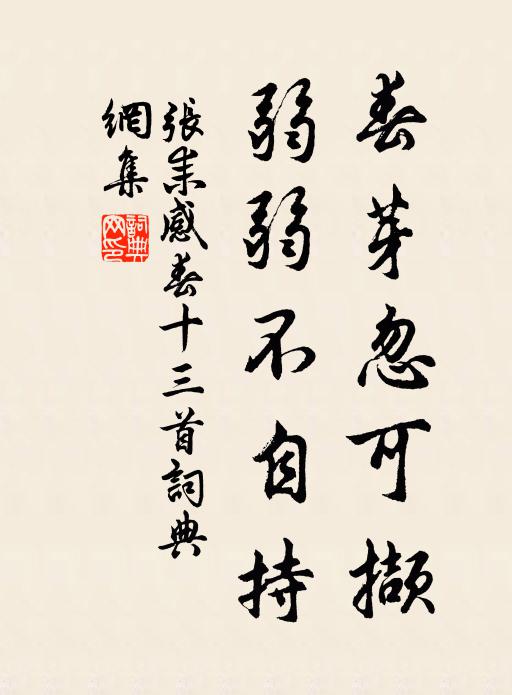 春芽忽可擷
弱弱不自持
張耒感春十三首詞典
網集
詞典
網印